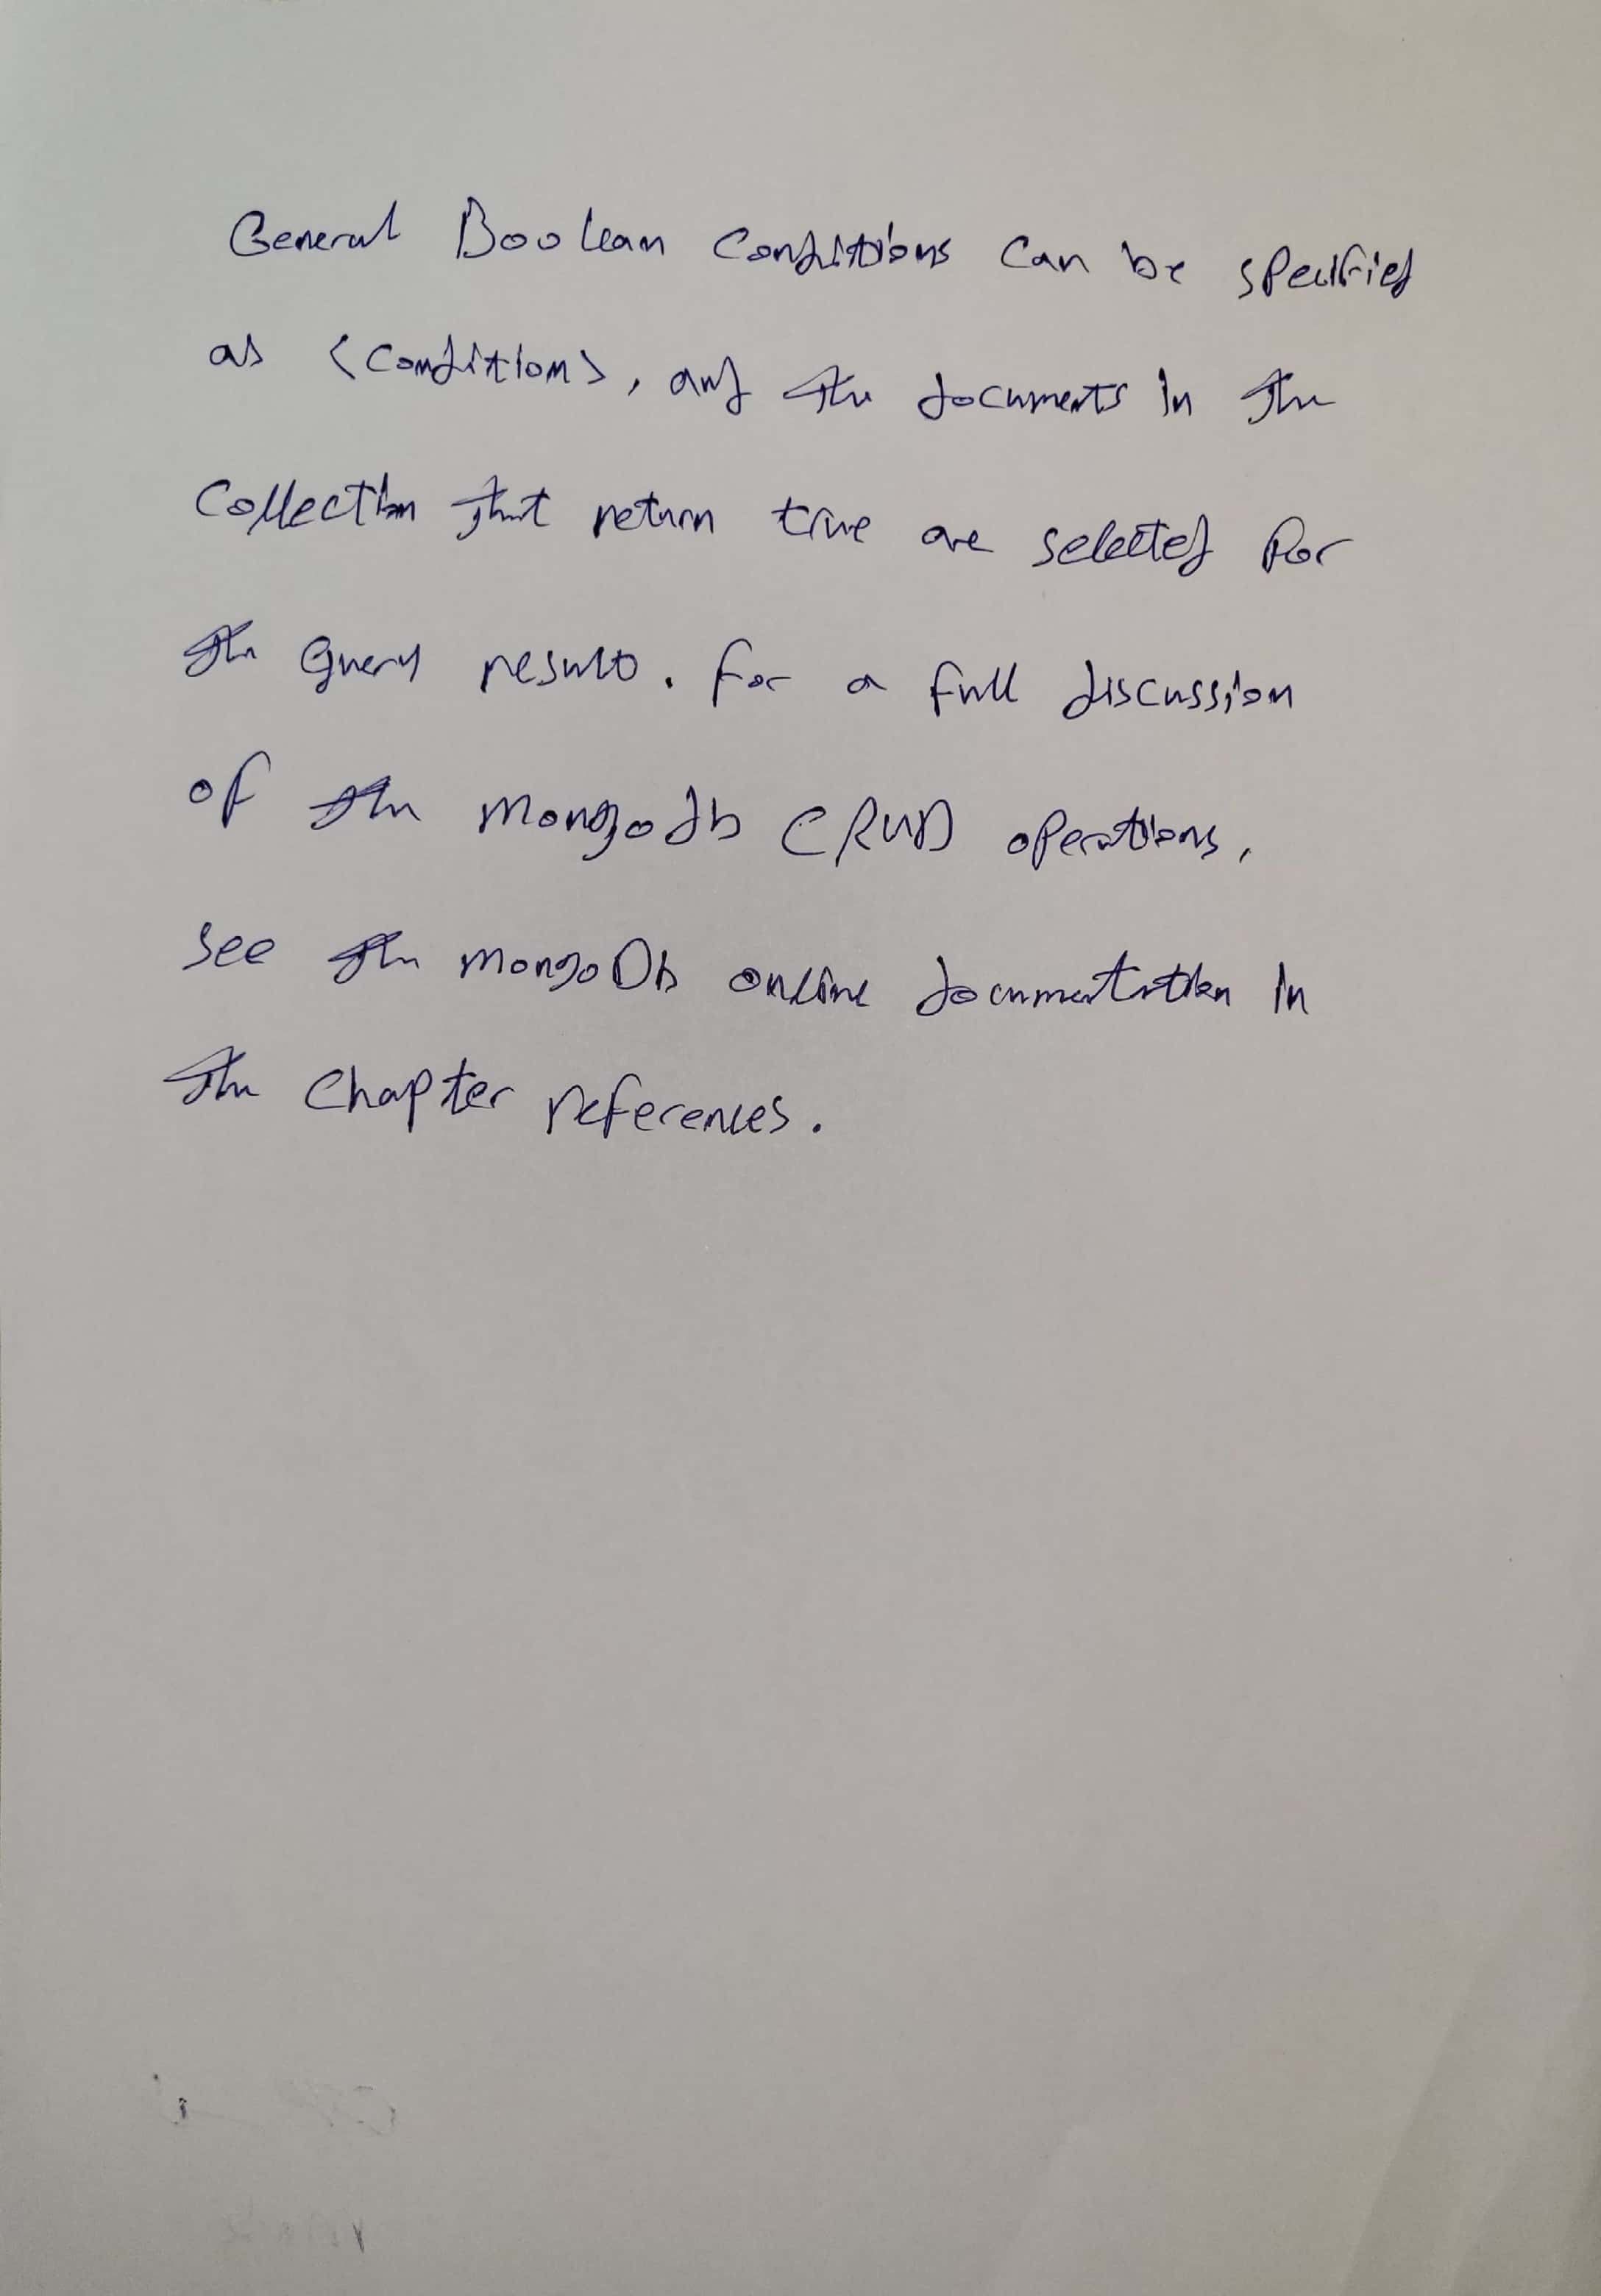 General Boolean Conditions Can be specified
as <condition>, and the documents in the
Collection that return true are selected for
the Query result. for a full discussion
of the mongodb CRUD operations,
see the mongoDb online documentation in
the Chapter references.